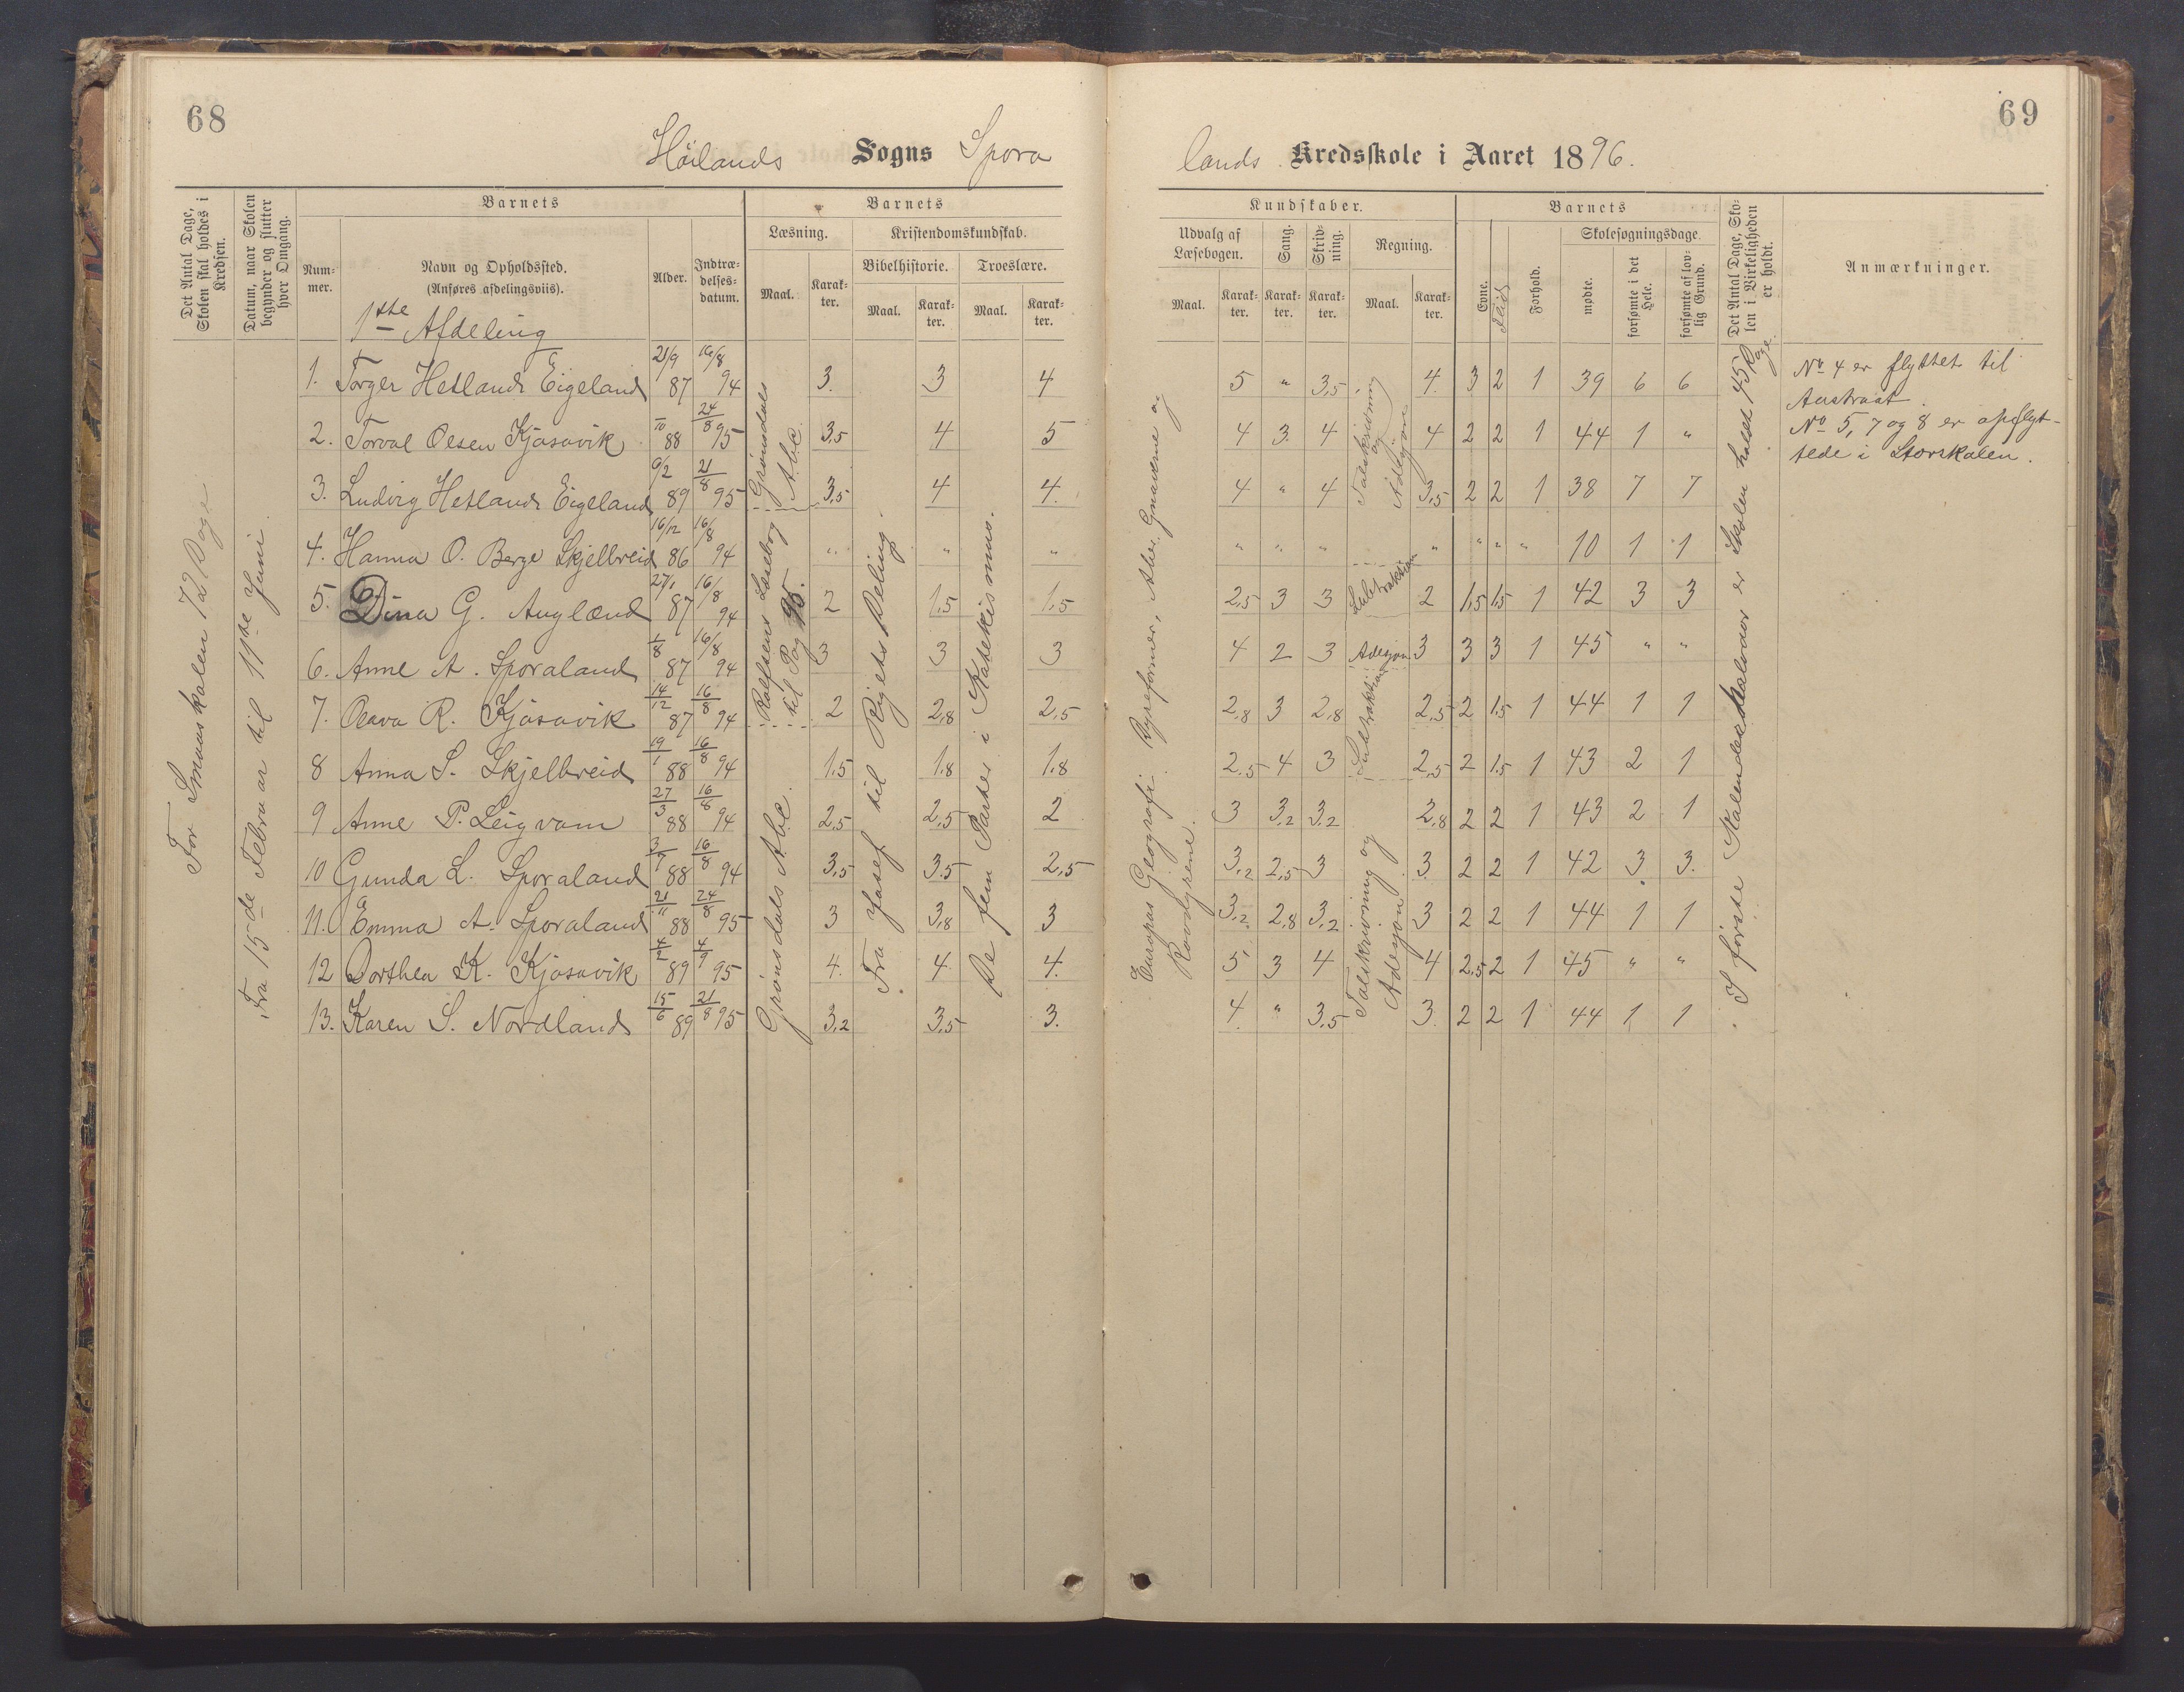 68
Høilands Sogns Spora
Det Antal Dage, Skolen skal holdes i Kredsen.
Datum, naar Skolen begynder og slutter hver Omgang.
Barnets
Barnets
Læsning.
Kristendomskundskab.
Num-mer.
Navn og Opholdssted.
(Anføres afdelingsviis).
Alder.
Indtræ-delses-datum.
Maal.
Karak-ter.
Bibelhistorie.
Troeslære.
Maal.
Karak-ter.
Maal.
Karak-ter.
1ste Afdeling
For Smaaskolen 72 Dage
Fra 15de Februar til 11te Juni
1. Torger Hetland Eigeland 21/9 87 16/8 94 3. 3 4
2. Torval Olsen Kjosavik /10 88 24/8 95 3,5 4 5
3. Ludvig Hetland Eigeland 9/2 89 21/8 95 3,5 4 4.
4. Hanna O. Berge Skjelbreid 16/12 86 16/8 94 " " "
5. Dina G. Auglænd 27/1 87 16/8 94 2 1,5 1,5
6. Anne A. Sporaland 1/8 87 16/8 94 3 3 3
7. Olava R. Kjosavik 14/12 87 16/8 94 2 2,8 2,5
8 Anna S. Skjelbreid 19/1 88 16/8 94 1,5 1,8 1,8
9 Anne P. Leigvam 27/3 88 16/8 94 2,5 2,5 2
10 Gunda L. Sporaland 3/7 88 16/8 94 3,5 3,5 2,5
11. Emma A. Sporaland 21/11 88 24/8 95 3 3,8 3
12 Dorthea K. Kjosavik 4/2 89 4/9 95 4. 4. 4.
13. Karen S. Nordland 15/6 89 21/8 95 3,2 3,5 3.
Grønsdals A.b.c.
Rolfsens Læsebog til Pag 95.
Grønsdals A.b.c.
Fra Josef til Rigets Deling.
De fem Parter i Katekismus.
69
lands Kredsskole i Aaret 1896.
Kundskaber.
Barnets
Udvalg af Læsebogen.
Sang.
Skriv-ning.
Regning.
Maal.
Karak-ter.
Karak-ter.
Karak-ter.
Maal.
Karak-ter.
Evne.
Flid
Forhold.
Skolesøgningsdage.
mødte.
forsømte i det Hele.
forsømte af lov-lig Grund.
Det Antal Dage, Sko-len i Virkeligheden er holdt.
Anmærkninger.
5 " 3,5 4. 3 2 1 39 6 6
4 3. 4 4 2 2 1 44 1 "
4 " 4 3,5 2 2 1 38 7 7
" " " " " " " 10 1 1
2,5 3 3 2 1,5 1,5 1 42 3 3
4 2 3 Adesjon 3 3 3 1 45 " "
2,8 3 2,8 2,5 2 1,5 1 44 1 1
2,5 4 3 2,5 2 1,5 1 43 2 1
3 3,2 3,2 2,8 2 2 1 43 2 1
3,2 2,5 3 3. 2 2 1 42 3 3.
3,2 2,8 3,2 3 2 2 1 44 1 1
5 3 4 4 2,5 2 1 45 " "
4. " 3,5 3. 2 2 1 44 1 1
Europas Geografi. Dyreformer, Aber, Gnaverne og Rovdyrene.
Talskrivning og Adesjon
Subtraktion
Subtraktion
Talskrivning og Adesjon
I første Kalenderhalvaar er Skolen holdt 45 Dage
No 4 er flyttet til
Austraat.
No 5, 7 og 8 er opflyt-
tede i Storskolen.